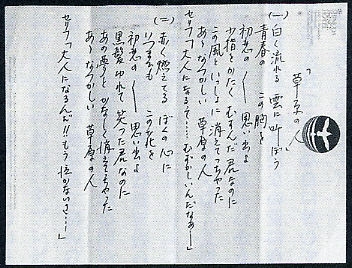 「草原の人」
(一) 白く流れる 雲に叫ぼう
青春の この胸を
初恋の 思い出よ
小指をかたく むすんだ君なのに
この風といっしょに 消えてっちゃった
あゝなつかしい 草原の人
セリフ「大人になるって……むずかしいんだなあー」
(二) 赤く燃えてる ぼくの心に
いつまでも この花を
初恋の 思い出よ
黒髪ゆれて 笑った君なのに
あの夢と かなしく消えちゃった
あゝなつかしい 草原の人
セリフ「大人になるんだ!!もう泣かないさ…ー」